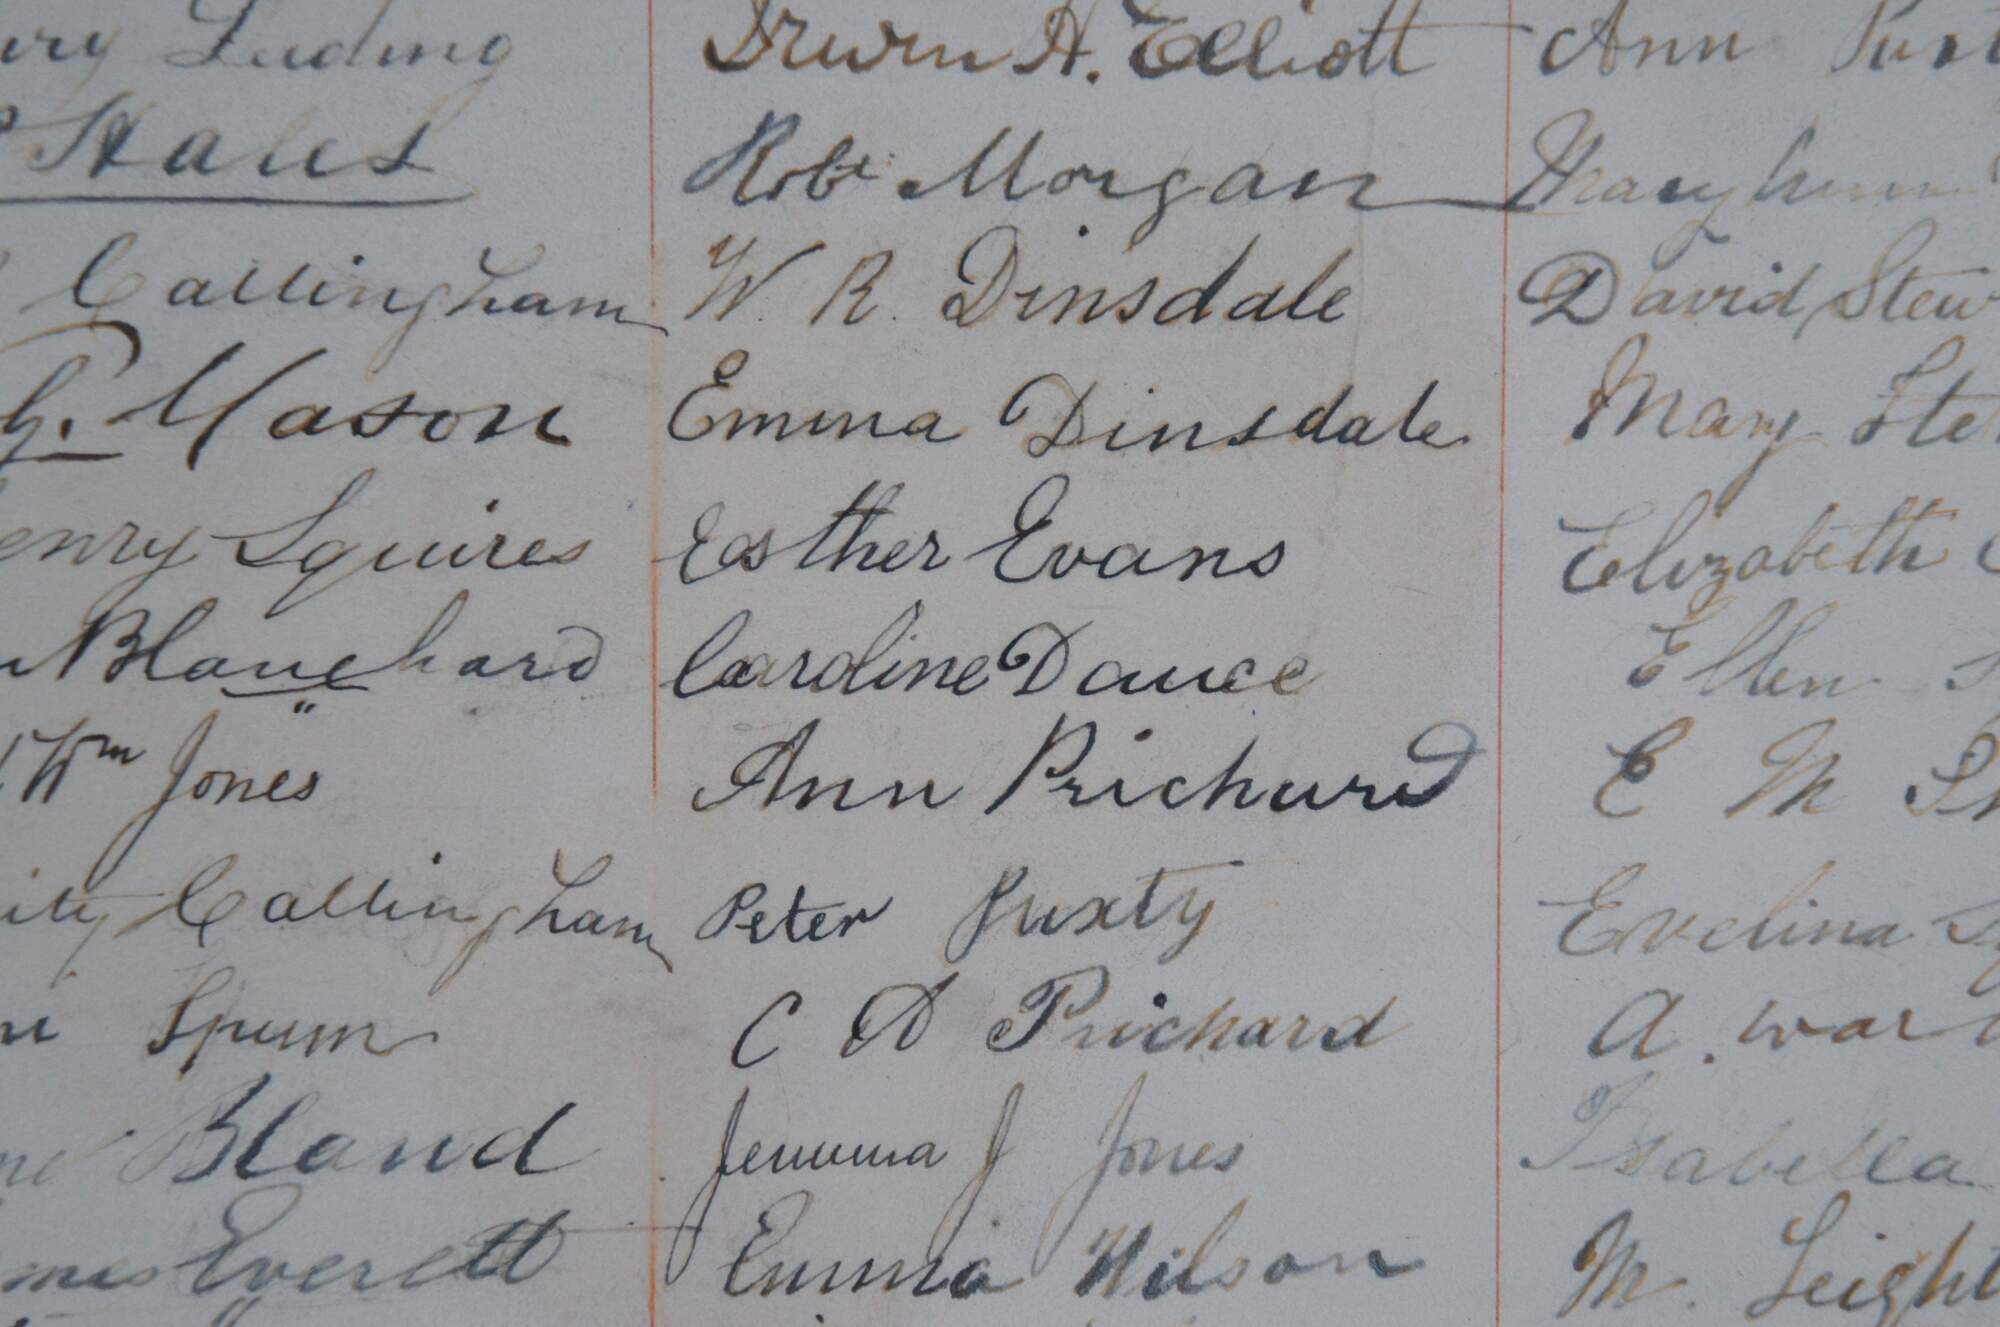 Luding
Hales
Callingham
G. Mason
Squires
Blanchard
Wm Jones
Callingham
Spurr
Bland
Everett
Irwin H. Elliott
Robt Morgan
W. R. Dinsdale
Emma Dinsdale
Esther Evans
Caroline Dance
Ann Prichard
Peter Juxty
C A Prichard
Jemima J Jones
Emma Wilson
Ann
Mary
David Stew
Mary Ste
Elizabeth
Ellen
E M
Evelina
A. War
Isabella
M. Leight